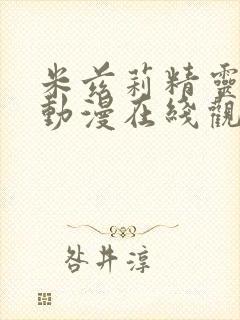 米茲莉精靈
動漫在綫觀
咎井淳